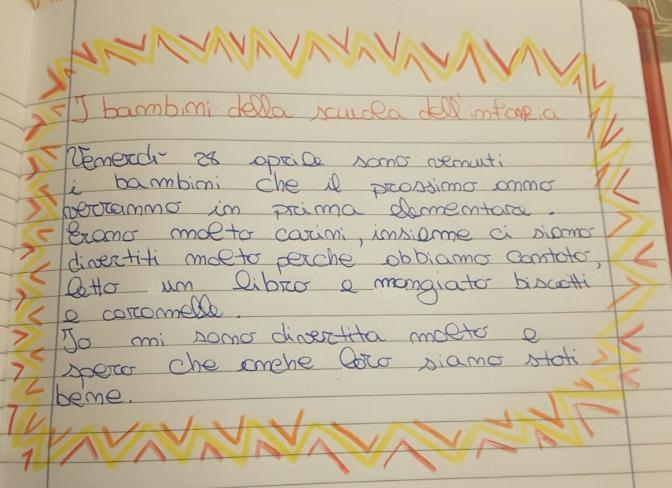 I bambini della scuola dell'infanzia
Venerdì 28 aprile sono venuti
i bambini che il prossimo anno
verranno in prima elementare.
Erano molto carini, insieme ci siamo
divertiti molto perche abbiamo cantato,
letto un libro e mangiato biscotti
e caramelle.
Io mi sono divertita molto e
spero che anche loro siano stati
bene.